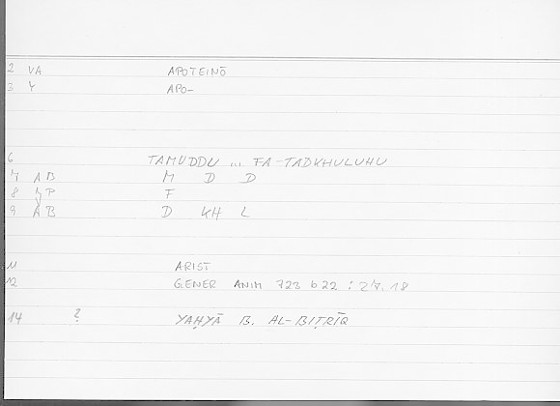 2 VA APOTEINŌ
3 Y APO-
6 TAMUDDU ... FA-TADKHULUHU
7 AB M D D
8 YP F
9 AB D KH L
11 ARIST
12 GENER ANIM 723 b 22 : 27.18
14 ? YAḤYĀ B. AL-BIṬRĪQ